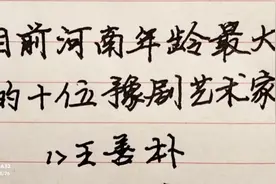 目前河南年龄最大
的十位豫剧艺术家
1>王善朴